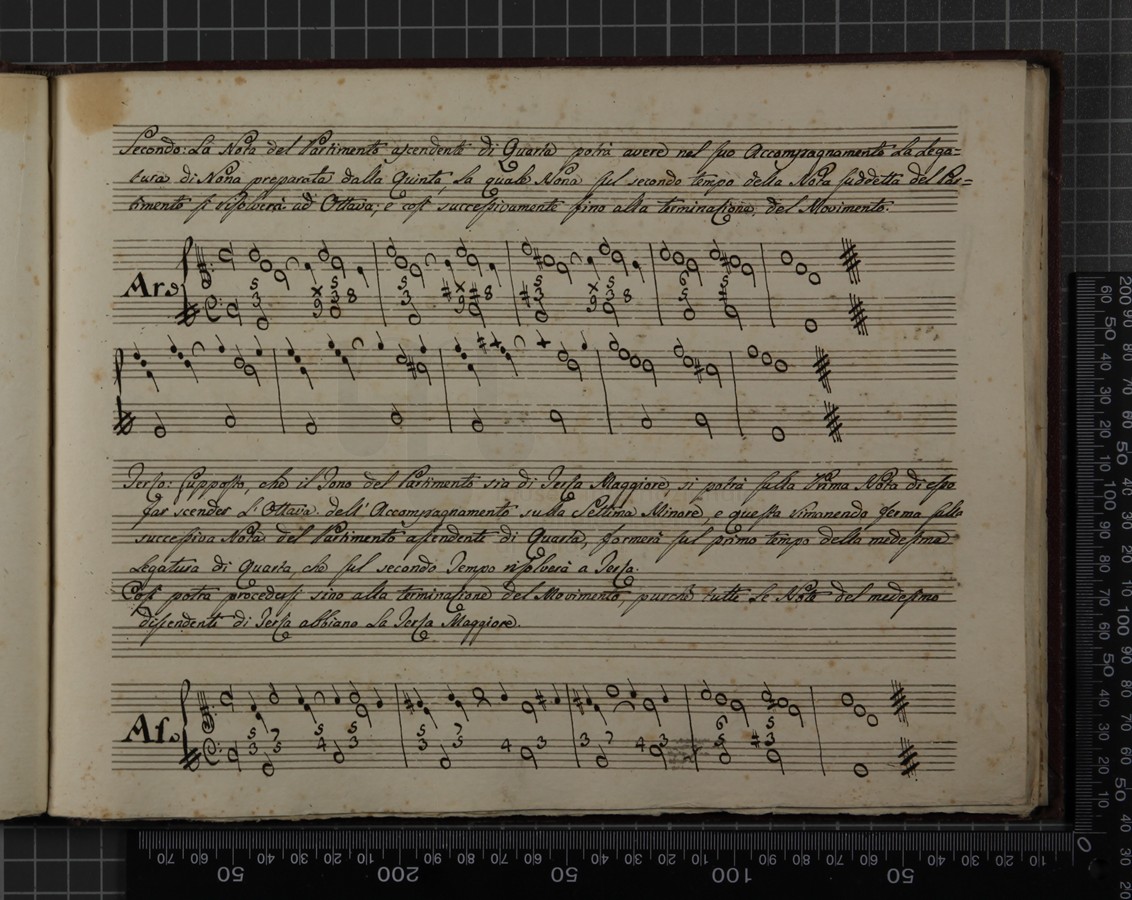 Secondo: La Nota del Partimento ascendente di Quarta potrà avere nel suo Accompagnamento La Lega=
tura di Nona preparata dalla Quinta, La quale Nona sul secondo tempo della Nota suddetta del Par=
timento si risolverà ad Ottava; e così successivamente fino alla terminazione del Movimento.
Terza: Supposto, che il Tono del Partimento sia di Terza Maggiore, si potrà sulla Prima Nota di esso
far scender L'Ottava dell'Accompagnamento sulla Settima Minore, e questa rimanendo ferma sulla
successiva Nota del Partimento ascendente di Quarta, formerà sul primo tempo della medesima
Legatura di Quarta, che sul secondo Tempo risolverà a Terza.
Così potrà procedersi sino alla terminazione del Movimento, purchè tutte Le Note del medesimo
discendenti di Terza abbiano La Terza Maggiore.